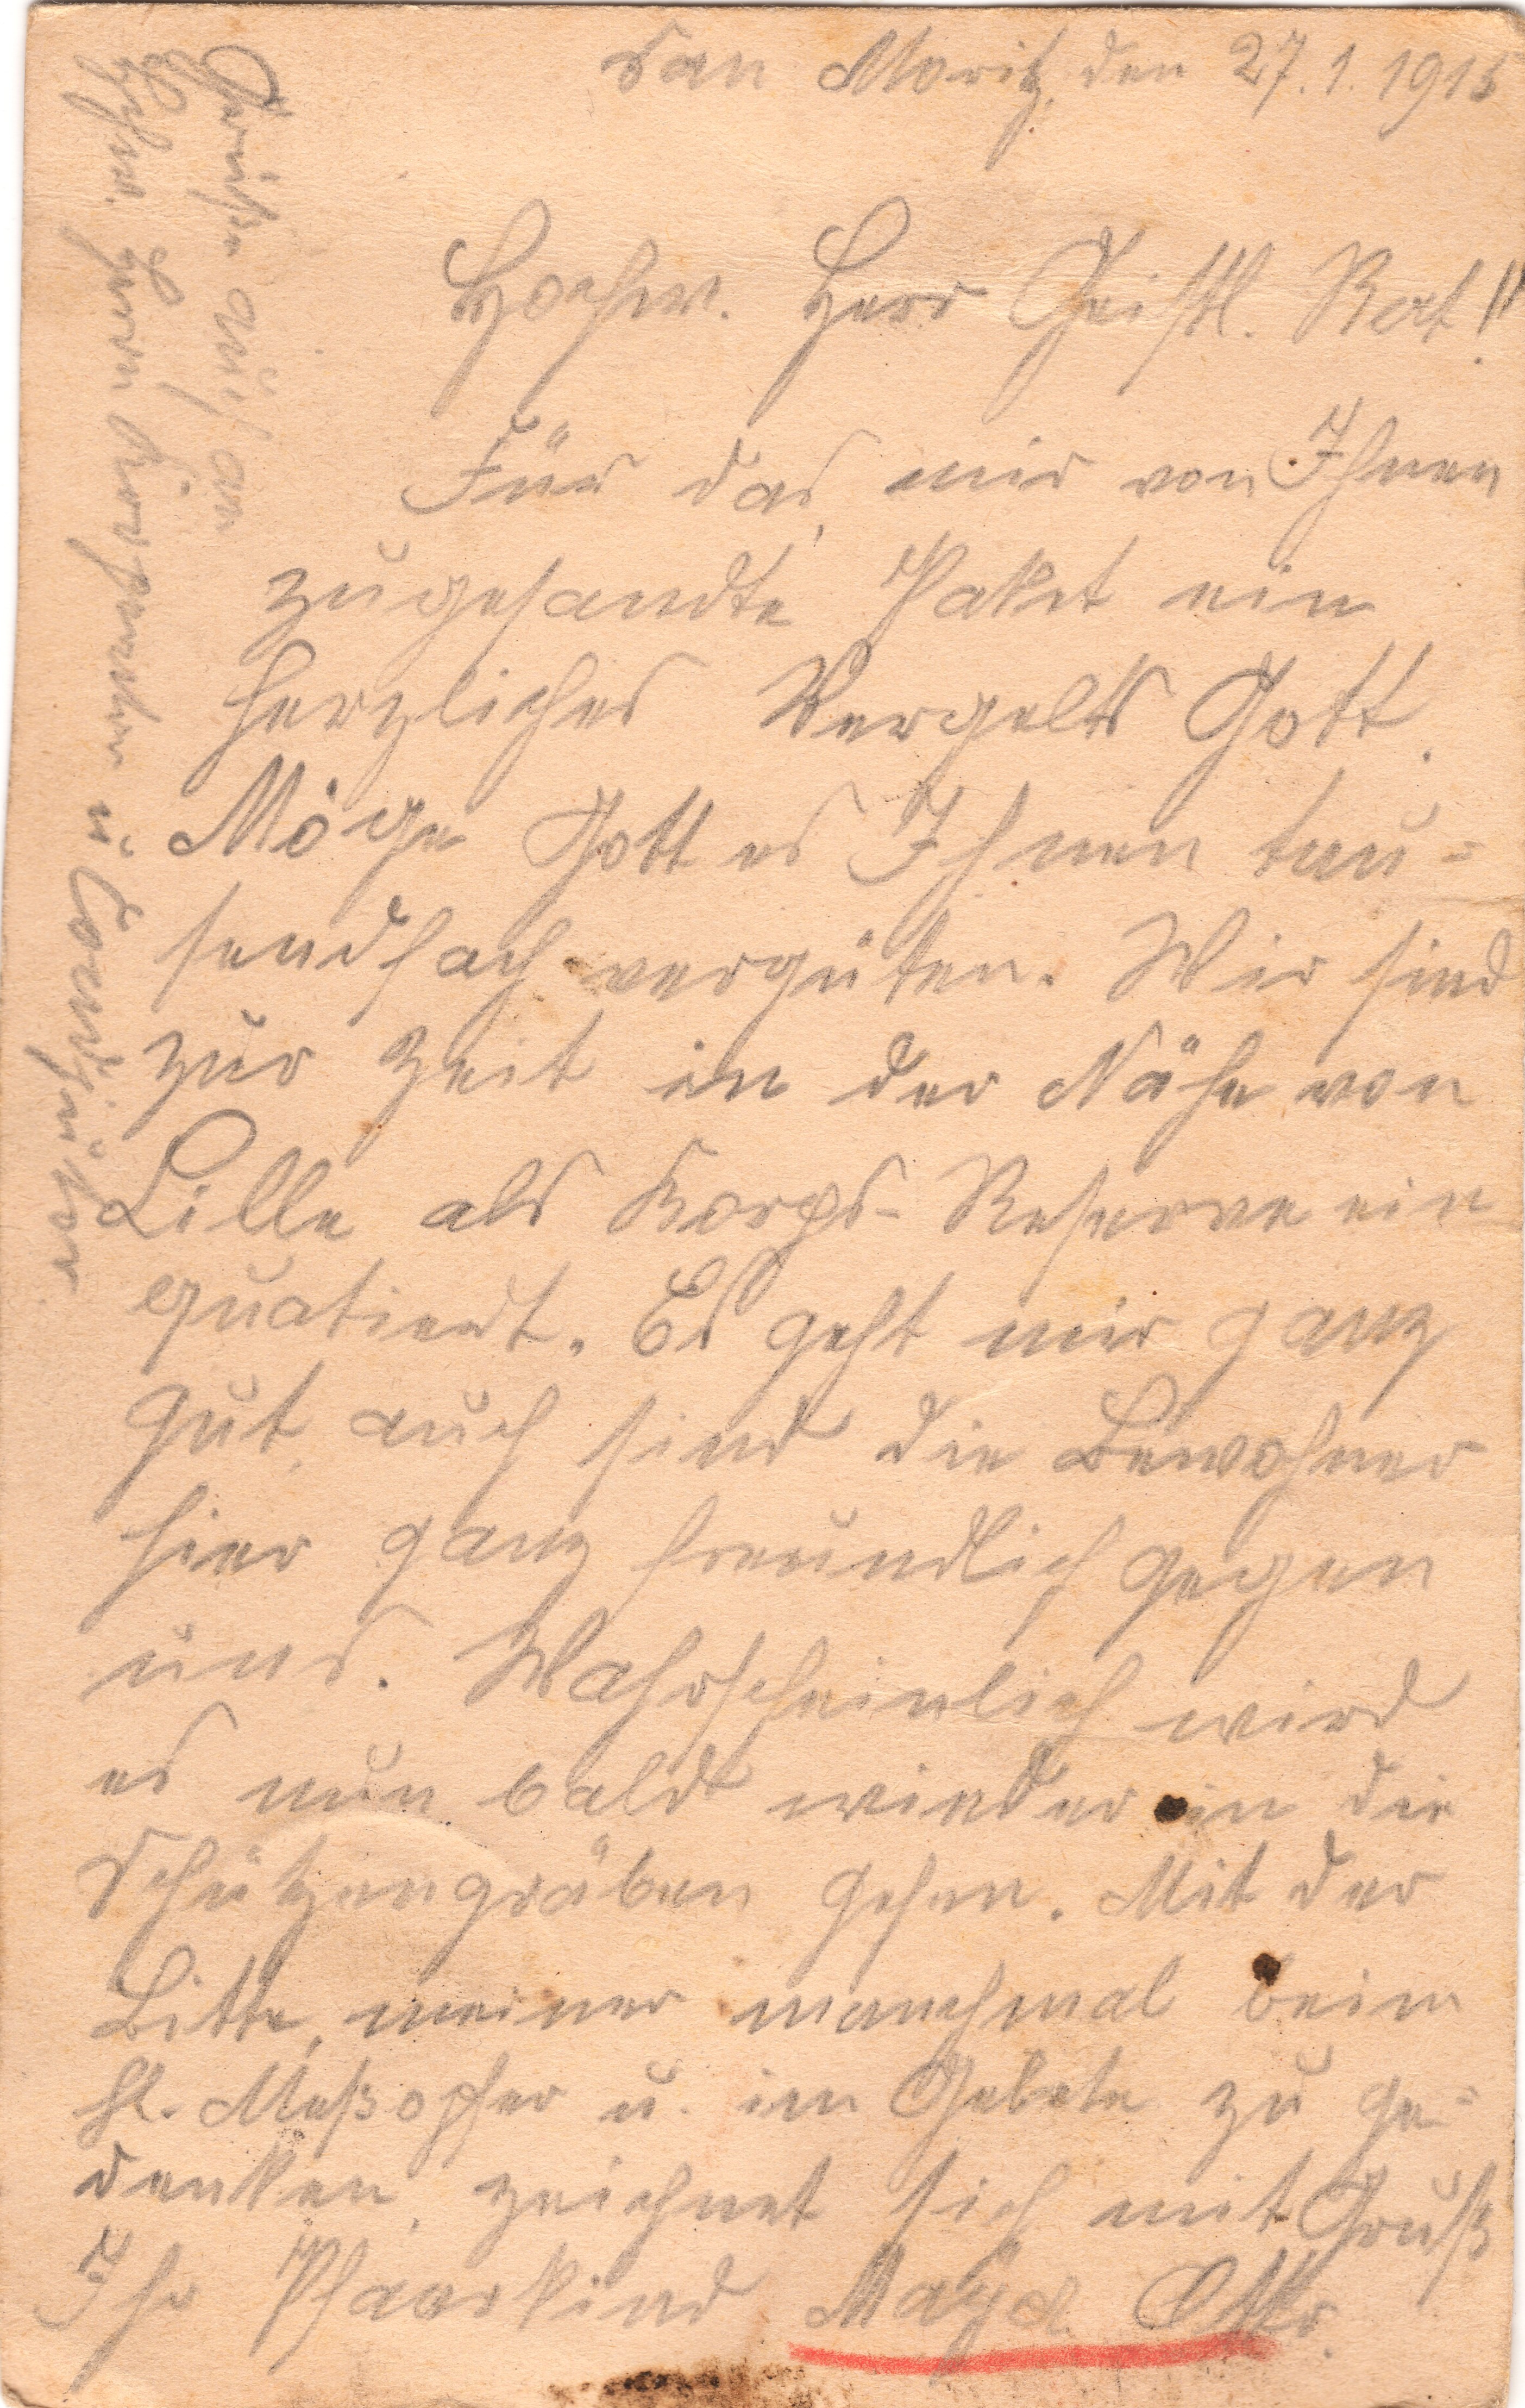 San Moritz, den 27.1.1915
Hochw. Herr Geistl. Rat!!
Für das, mir von Ihnen
zugesandte Paket ein
herzliches Vergelts Gott.
Möge Gott es Ihnen tau-
sendfach vergüten. Wir sind
zur Zeit in der Nähe von
Lille als Korps-Reserve ein
quatiert. Es geht mir ganz
gut, auch sind die Bewohner
hier ganz freundlich gegen
uns. Wahrscheinlich wird
es nun bald wieder in die
Schützengräben gehen. Mit der
Bitte, meiner manchmal beim
hl. Meßopfer u. im Gebete zu ge-
denken, zeichnet sich mit Gruß
Ihr Pfarrkind Mayer
Grüße auch an
Hochw. Herrn Kooperator u.